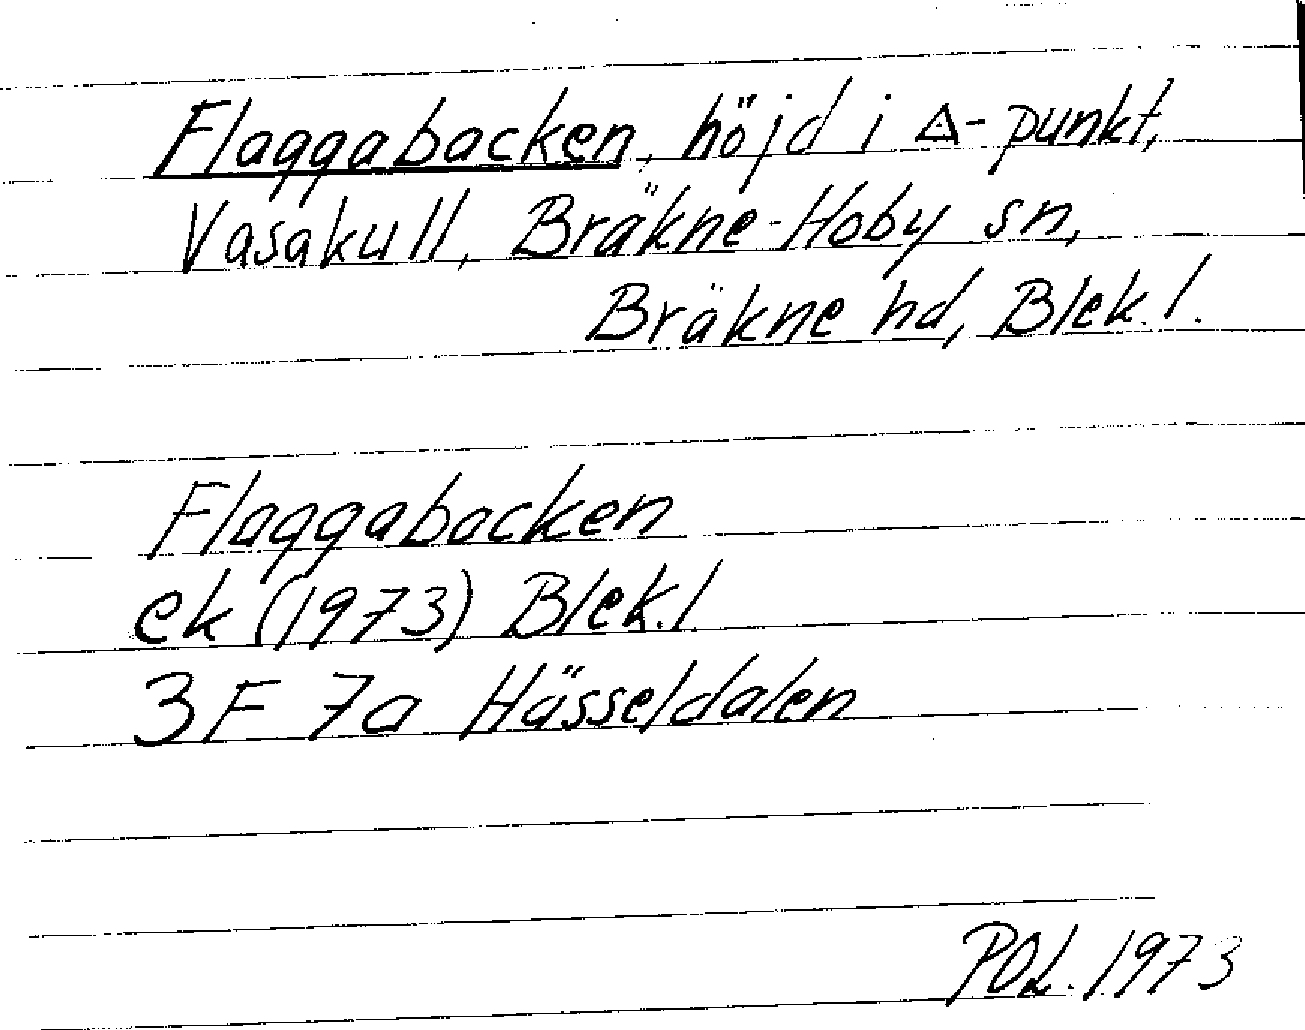 Flaggabacken, höjd i △-punkt,
Vasakull, Bräkne-Hoby sn,
Bräkne hd, Blek. l.
Flaggabacken
ek (1973) Blek. l
3F 7a Hässeldalen
POL. 1973